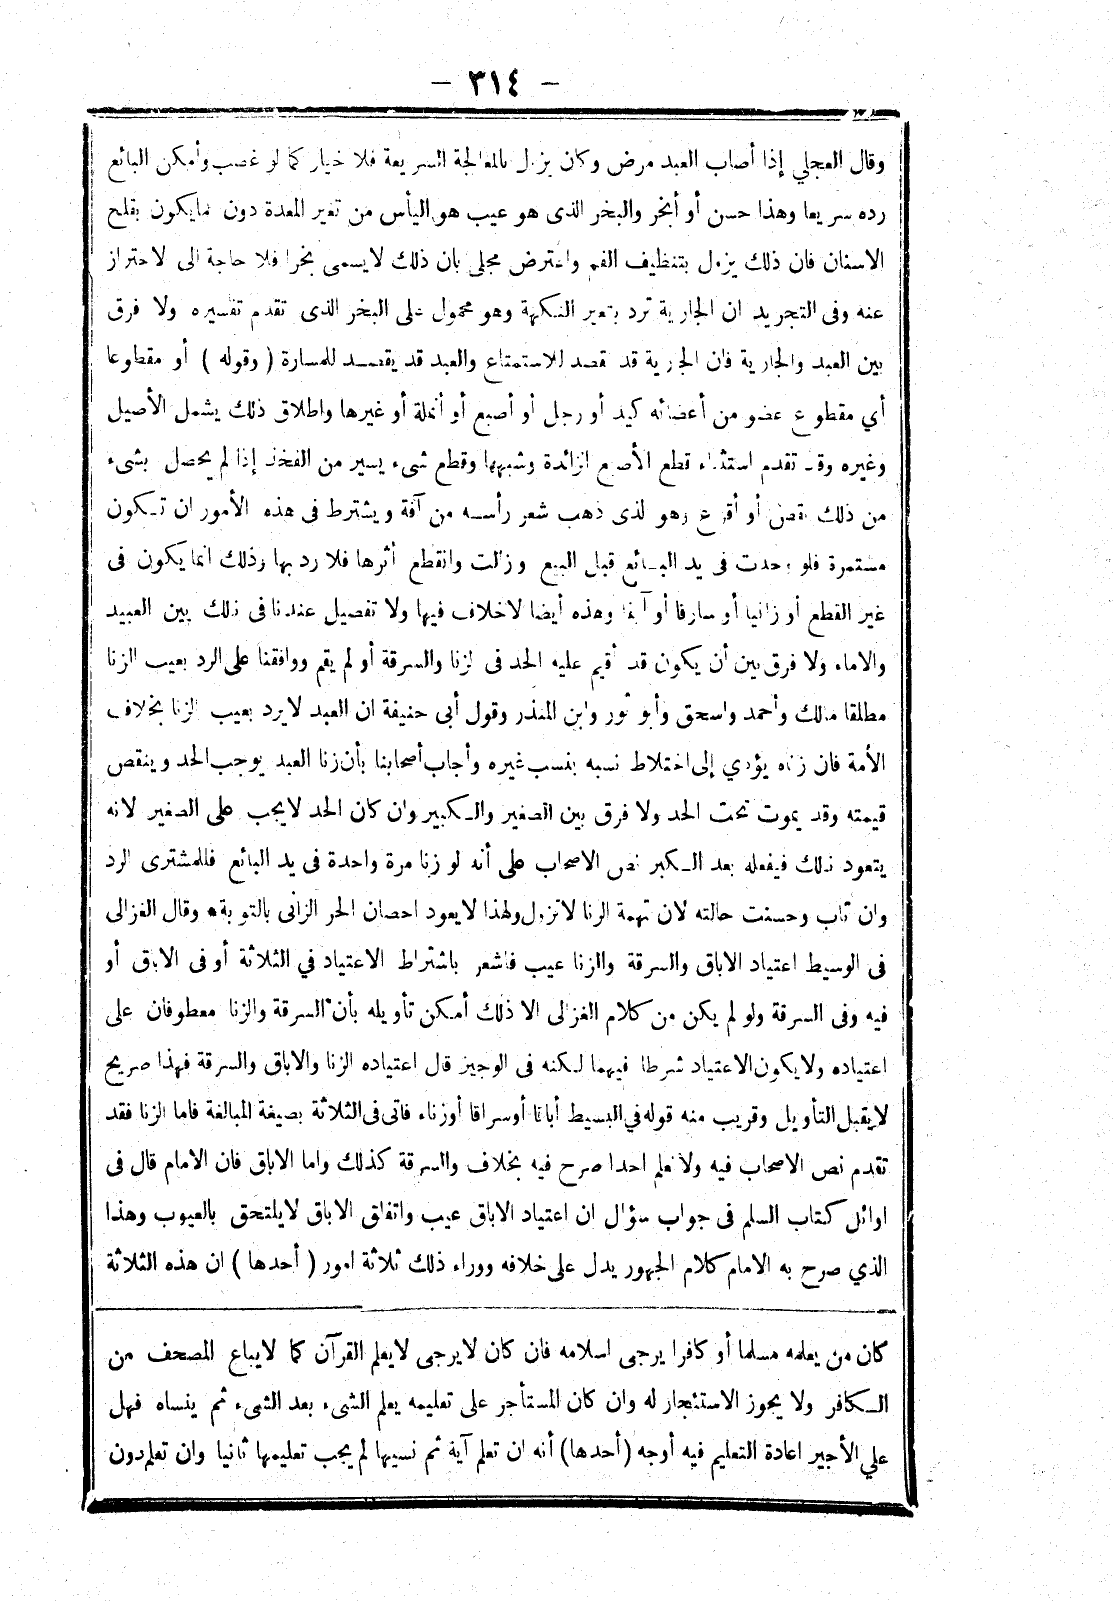 - ٣١٤ -
وقال العجلي إذا أصاب العبد مرض وكان يزول بالمعالجة السريعة فلا خيار كما لو غصب وأمكن البائع
رده سريعا وهذا حسن أو أبخر والبخر الذى هو عيب هو اليأس من تغير المعدة دون مايكون بقلح
الاسنان فان ذلك يزول بتنظيف الفم واعترض مجلي بان ذلك لايسمى بخرا فلا حاجة الى لاحتراز
عنه وفى التجريد ان الجارية ترد بتغير النكهة وهو محمول على البخر الذى تقدم تفسيره ولا فرق
بين العبد والجارية فان الجارية قد تقصد للاستمتاع والعبد قد يقصد للمسارة ( وقوله ) أو مقطوعا
أي مقطوع عضو من أعضائه كيد أو رجل أو أصبع أو أنملة أو غيرها واطلاق ذلك يشمل الأصيل
وغيره وقد تقدم استثناء قطع الأصبع الزائدة وشبهها وقطع شىء يسير من الفخذ إذا لم يحصل بشىء
من ذلك نقص أو أقرع وهو لذى ذهب شعر رأسه من آفة ويشترط فى هذه الأمور ان تكون
مستمرة فلو وجدت فى يد البائع قبل البيع وزالت وانقطع أثرها فلا رد بها وذلك انما يكون فى
غير القطع أو زانيا أو سارقا أو آبقا وهذه أيضا لاخلاف فيها ولا تفصيل عندنا فى ذلك بين العبيد
والاماء ولا فرق بين أن يكون قد أقيم عليه الحد فى لزنا والسرقة أو لم يقم ووافقنا على الرد بعيب الزنا
مطلقا مالك وأحمد واسحق وأبو ثور وابن المنذر وقول أبى حنيفة ان العبد لايرد بعيب الزنا بخلاف
الأمة فان زناه يؤدي إلى اختلاط نسبه بنسب غيره وأجاب أصحابنا بأن زنا العبد يوجب الحد وينقص
قيمته وقد يموت تحت الحد ولا فرق بين الصغير والكبير وان كان الحد لايجب على الصغير لانه
يتعود ذلك فيفعله بعد الكبر نص الاصحاب على أنه لو زنا مرة واحدة فى يد البائع فللمشترى الرد
وان تاب وحسنت حالته لان تهمة الزنا لاتزول ولهذا لايعود احصان الحر الزانى بالتوبة* وقال الغزالى
فى الوسيط اعتياد الاباق والسرقة والزنا عيب فاشعر باشتراط الاعتياد في الثلاثة أو فى الاباق أو
فيه وفى السرقة ولو لم يكن من كلام الغزالى الا ذلك أمكن تأويله بأن السرقة والزنا معطوفان على
اعتياده ولا يكون الاعتياد شرطا فيهما لكنه فى الوجيز قال اعتياده الزنا والاباق والسرقة فهذا صريح
لايقبل التأويل وقريب منه قوله في البسيط أباقا أوسراقا أوزناء فاتى فى الثلاثة بصيغة المبالغة فاما الزنا فقد
تقدم نص الاصحاب فيه ولا نعلم احدا صرح فيه بخلاف والسرقة كذلك واما الاباق فان الامام قال فى
اوائل كتاب السلم فى جواب سؤال ان اعتياد الاباق عيب واتفاق الاباق لايلتحق بالعيوب وهذا
الذي صرح به الامام كلام الجمهور يدل على خلافه ووراء ذلك ثلاثة امور ( أحدها ) ان هذه الثلاثة
كان من يعلمه مسلما أو كافرا يرجى اسلامه فان كان لايرجى لايعلم القرآن كما لايباع المصحف من
الكافر ولا يجوز الاستئجار له وان كان المستأجر على تعليمه يعلم الشىء بعد الشىء ثم ينساه فهل
علي الأجير اعادة التعليم فيه أوجه (أحدها) أنه ان تعلم آية ثم نسيها لم يجب تعليمها ثانيا وان تعلم دون